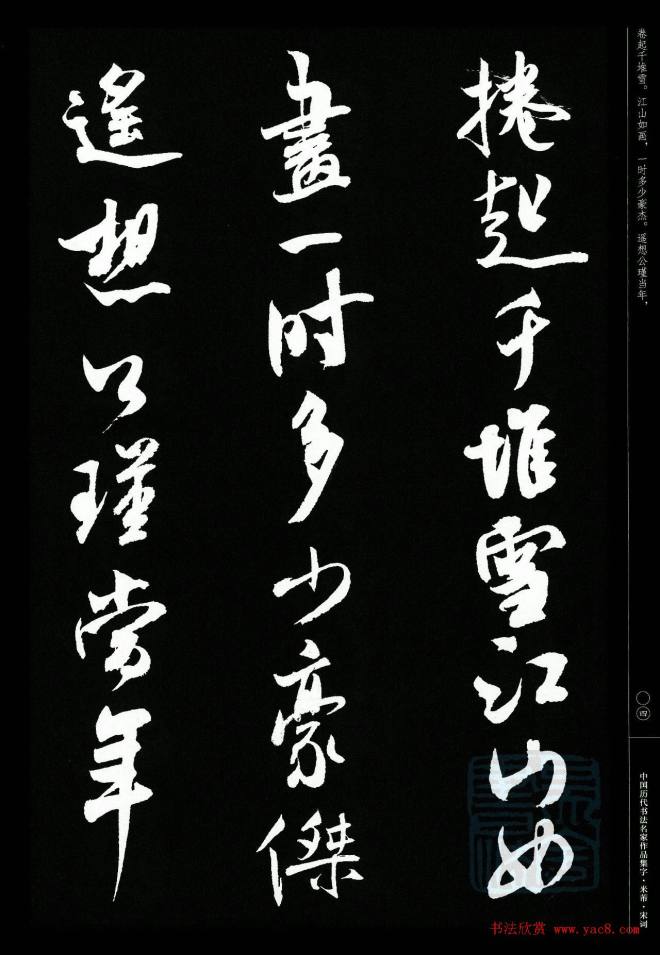 捲起千堆雪江山如
畫一时多少豪傑
遙想公瑾當年
卷起千堆雪。江山如画，一时多少豪杰。遥想公瑾当年，
〇四
中国历代书法名家作品集字·米芾·宋词
书法欣赏 www.yac8.com